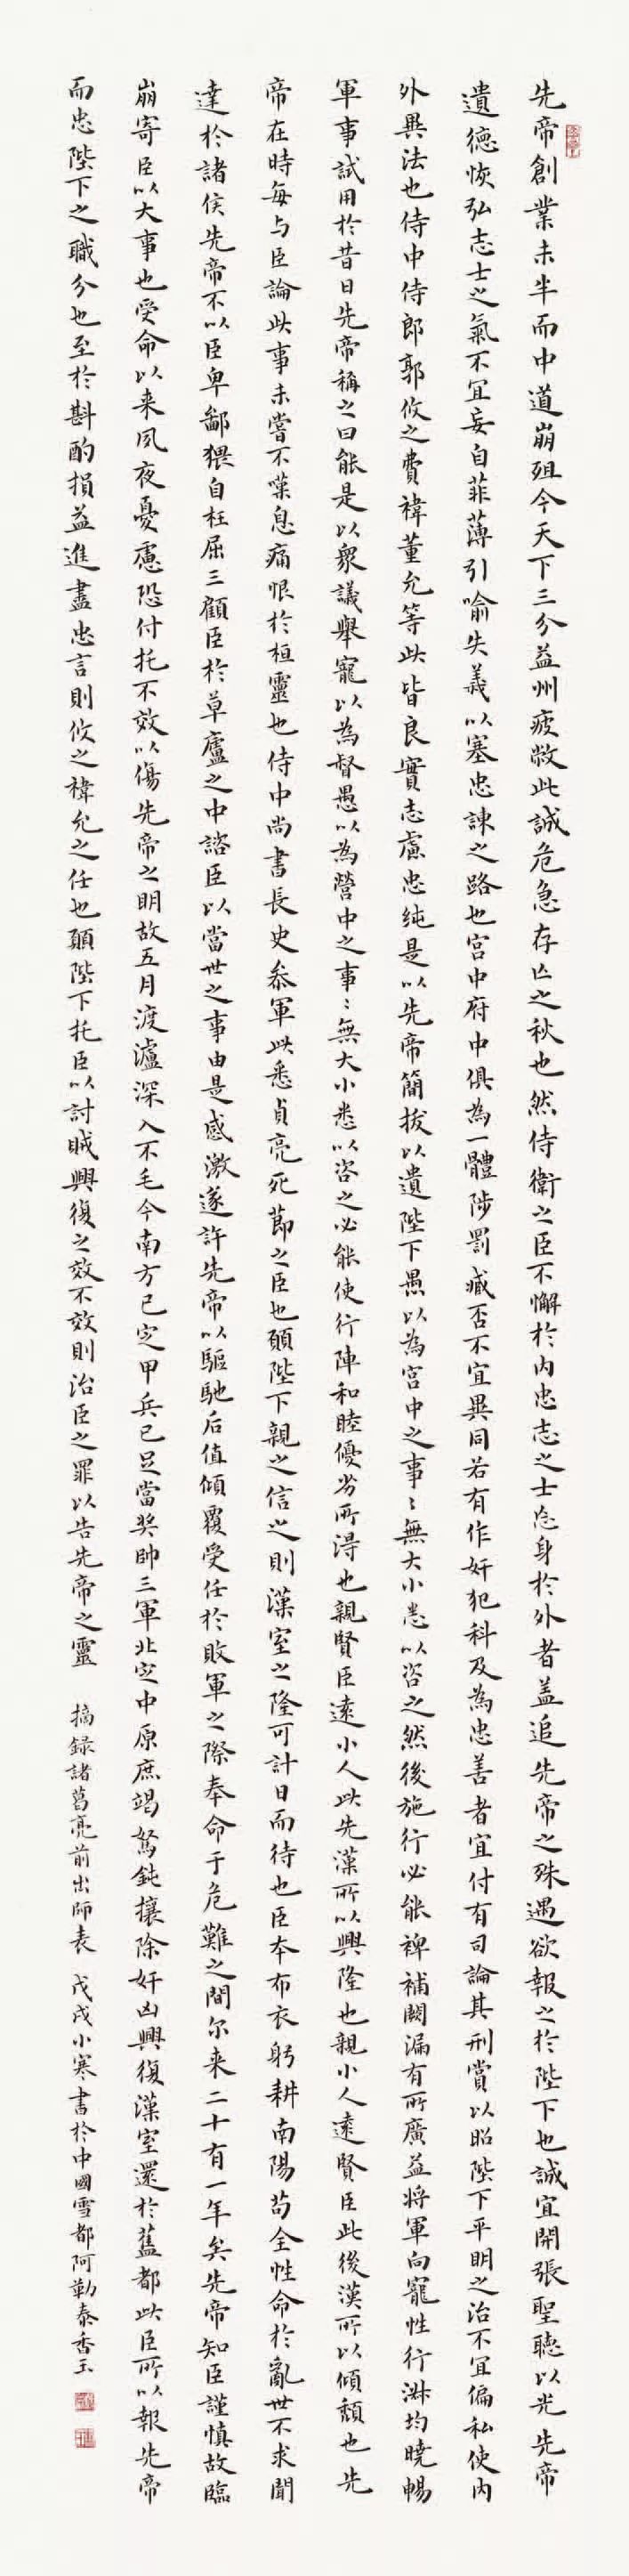 先帝創業未半而中道崩殂今天下三分益州疲敝此誠危急存亡之秋也然侍衛之臣不懈於内忠志之士忘身於外者盖追先帝之殊遇欲報之於陛下也誠宜開張聖聽以光先帝
遺德恢弘志士之氣不宜妄自菲薄引喻失義以塞忠諫之路也宫中府中俱為一體陟罰臧否不宜異同若有作奸犯科及為忠善者宜付有司論其刑賞以昭陛下平明之治不宜偏私使内
外異法也侍中侍郎郭攸之費禕董允等此皆良實志慮忠纯是以先帝簡拔以遺陛下愚以為宫中之事〻無大小悉以咨之然後施行必能裨補闕漏有所廣益将軍向寵性行淑均曉暢
軍事試用於昔日先帝稱之曰能是以衆議舉寵以為督愚以為營中之事〻無大小悉以咨之必能使行陣和睦優劣所得也親賢臣遠小人此先漢所以興隆也親小人遠賢臣此後漢所以傾頹也先
帝在時每与臣論此事未嘗不嘆息痛恨於桓靈也侍中尚書長史叅軍此悉貞亮死節之臣也願陛下親之信之則漢室之隆可計日而待也臣本布衣躬耕南陽苟全性命於亂世不求聞
達於諸侯先帝不以臣卑鄙猥自枉屈三顧臣於草廬之中諮臣以當世之事由是感激遂許先帝以驅馳后值傾覆受任於敗軍之際奉命于危難之間尔来二十有一年矣先帝知臣謹慎故臨
崩寄臣以大事也受命以来夙夜憂慮恐付托不效以傷先帝之明故五月渡瀘深入不毛今南方已定甲兵已足當奖帥三軍北定中原庶竭駑鈍攘除奸凶興復漢室還於舊都此臣所以報先帝
而忠陛下之職分也至於斟酌損益進盡忠言則攸之禕允之任也願陛下托臣以討賊興復之效不效則治臣之罪以告先帝之靈 摘録諸葛亮前出師表 戊戌小寒書於中國雪都阿勒泰香玉